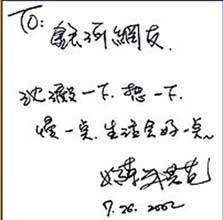 TO: 銀河網友.
沈澱一下. 想一下.
慢一点. 生活会好一点~
7.26.2002